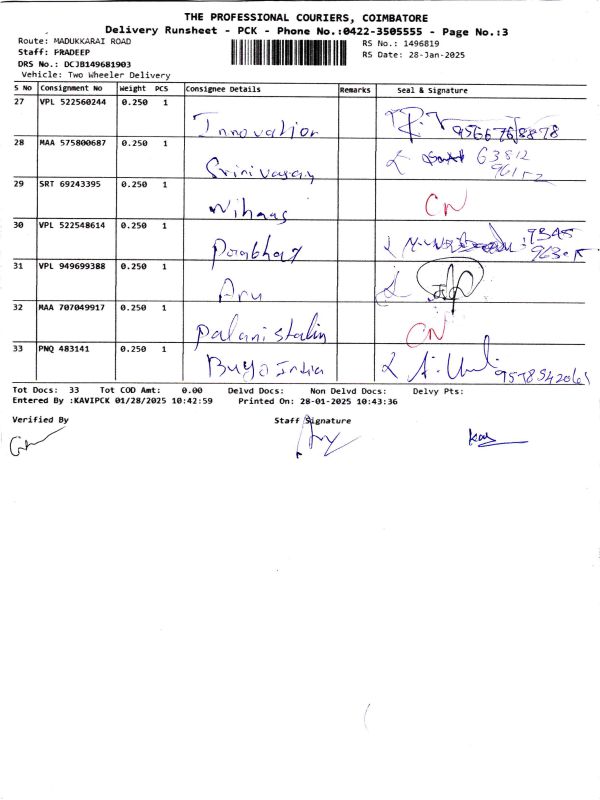 THE PROFESSIONAL COURIERS, COIMBATORE
Delivery Runsheet - PCK - Phone No.:0422-3505555 - Page No.:3
Route: MADUKKARAI ROAD
RS No.: 1496819
Staff: PRADEEP
RS Date: 28-Jan-2025
DRS No.: DCJB149681903
Vehicle: Two Wheeler Delivery
S No Consignment No Weight PCS Consignee Details Remarks Seal & Signature
27 VPL 522560244 0.250 1
Innovation 9566768878
28 MAA 575800687 0.250 1
Srinivasan 63812
96152
29 SRT 69243395 0.250 1
Nihaas CN
30 VPL 522548614 0.250 1
Prabhaz 9345
31 VPL 949699388 0.250 1
Aru
32 MAA 707049917 0.250 1
Palanistalin CN
33 PNQ 483141 0.250 1
Buyo India 9578542061
Tot Docs: 33 Tot COD Amt: 0.00 Delvd Docs: Non Delvd Docs: Delvy Pts:
Entered By :KAVIPCK 01/28/2025 10:42:59 Printed On: 28-01-2025 10:43:36
Verified By Staff Signature